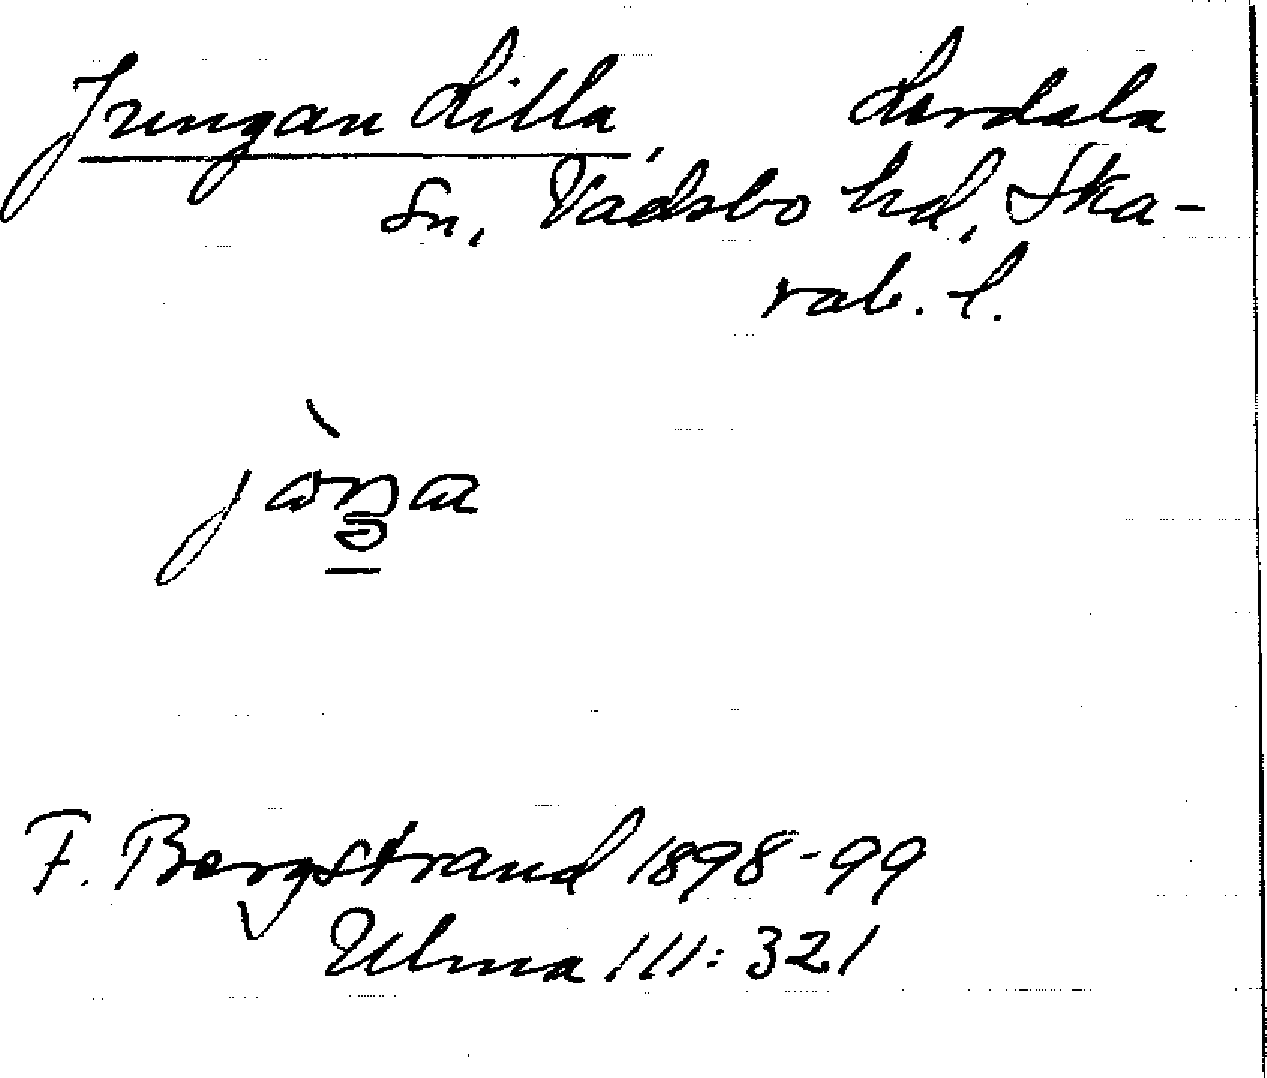 Jungan Lilla, Lerdala
Sn, Vadsbo hd, Ska-
rab. l.
F. Bergstrand 1898-99
Ulma 111:321